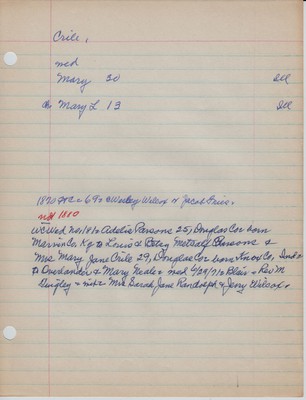 Crile,
ned
Mary 30 Ill
Ch Mary L 13 Ill
1870 # 69 Wesley Wilcox & Jacob
not 1880
WC Wed to Adelia Parsons 25, Douglas Co born
Marvin Co. Ky to Lewis & Betsy Metcalf Parsons &
Mrs Mary Jane Crile 29, Douglas Co born Knox Co, Ind
to Overlander & Mary Neale - med 4/29/71 to Blair - Rev M
- wits Mrs Sarah Jane Randolph & Jerry Wilcox.